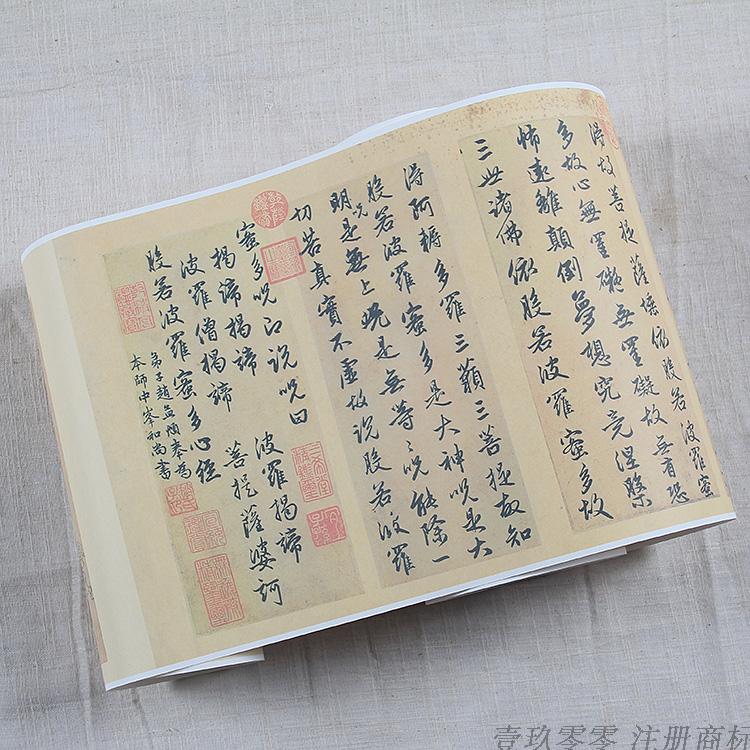 得故菩提薩埵依般若波羅蜜
多故心無罣礙無罣礙故無有恐
怖遠離顛倒夢想究竟涅槃
三世諸佛依般若波羅蜜多故
得阿耨多羅三藐三菩提故知
般若波羅蜜多是大神呪是大
明呪是無上呪是無等〻呪能除一
切苦真實不虛故說般若波羅
蜜多呪即說呪曰
揭諦揭諦 波羅揭諦
波羅僧揭諦 菩提薩婆訶
般若波羅蜜多心經
弟子趙孟頫奉為
本師中峯和尚書
壹玖零零 注册商标